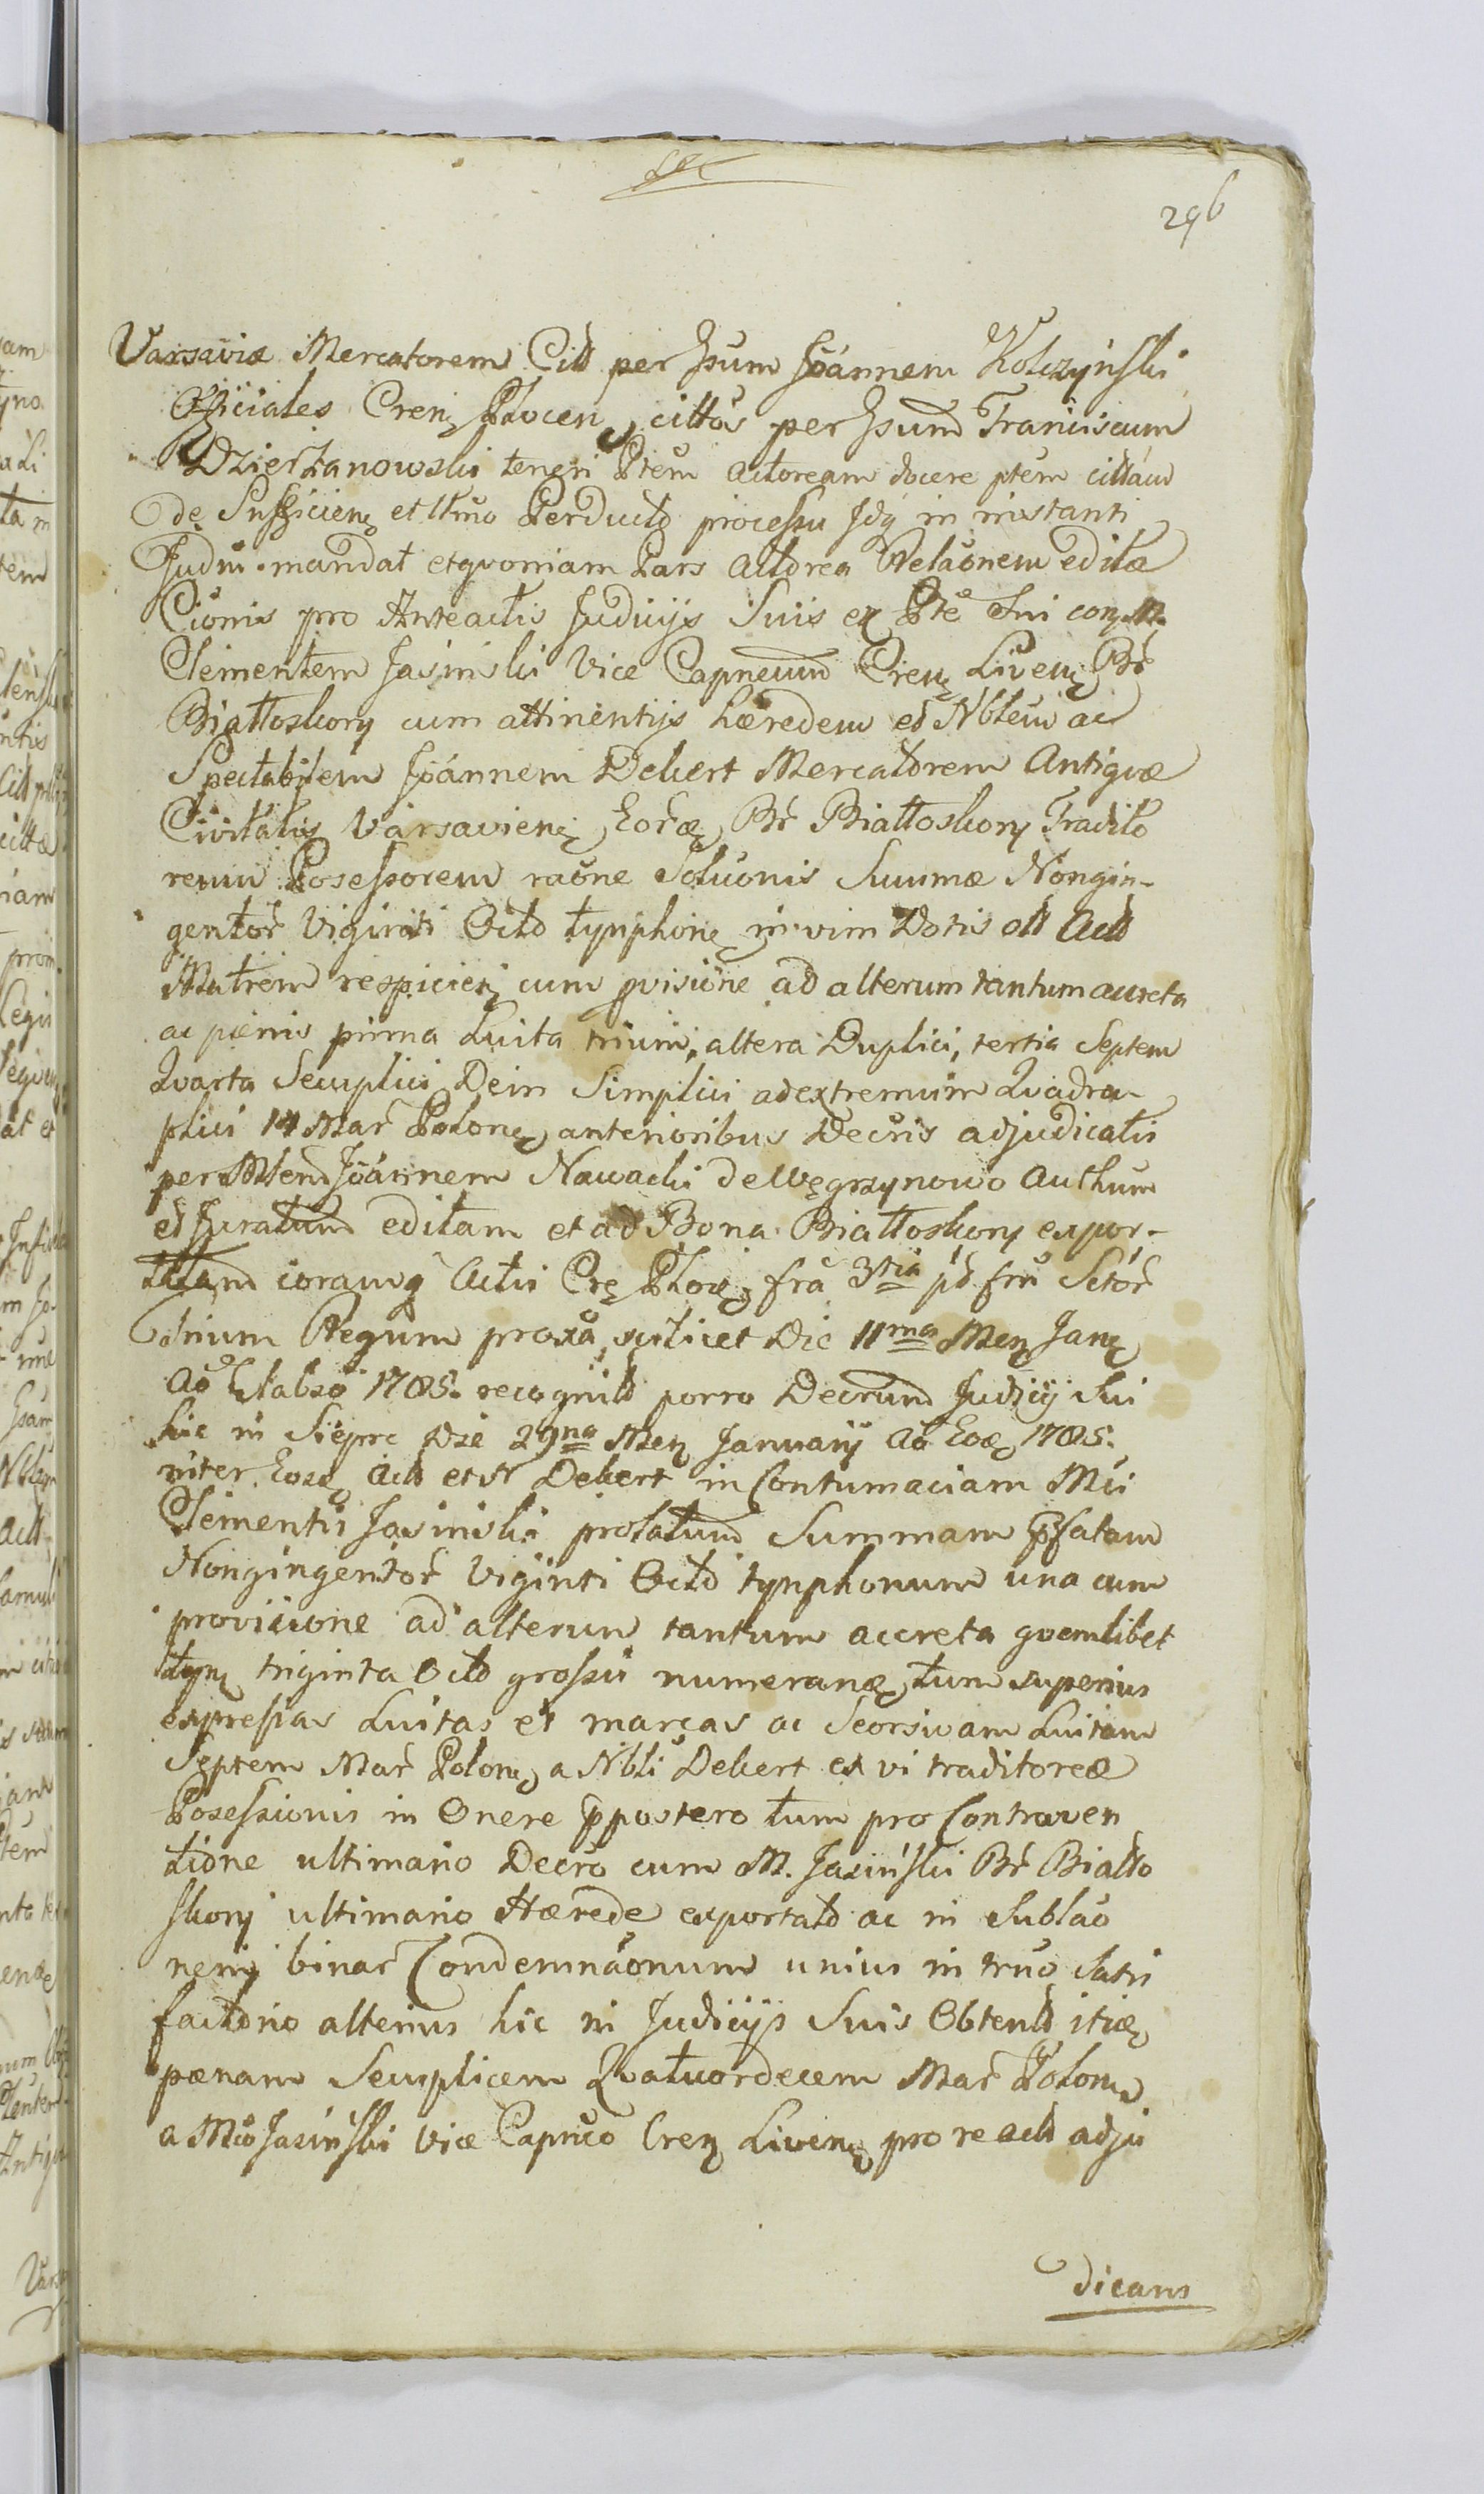 296
Varsaviæ Mercatorem Citt per Gsum Joánnem Kolczyński
Officiales Cren Plocen, cittos per Gsum Franciscum
Dzierżanowski teneri Ptem Actoream docere ptem cittam
de Sufficien et ltmo Perducto processu Jdq in instanti
Judm mandat etqvoniam Pars Acttorea Relaonem editæ
Cionis pro Anteactis Judicijs Suis ex Pte Sui con M.
Clementem Jasinski Vice Capneum Cren Liven Br
Białłoskory cum attinentijs hæredem et Nblem ac
Spectabilem Joánnem Dekert Mercatorem Antiqvæ
Civitatis Varsavien, Eoræ Br Białłoskory Tradito
reum Posessorem raone Soluonis Summæ Nongin-
gentor Viginti Octo tynphon in vim Dotis ott Act
Matrem respicien cum pvisione ad alterum tantum accreta
ac pænis prima Luita trium, altera Duplici, tertia Septem
Qvarta Sexuplici Dein Simplici adextremum Qvadru-
plici 14 Mar Polon, anterioribus Decris adjudicatis
per Mlem Joánnem Nawacki de Węgrzynowo Authum
et Juratum editam et ad Bona Białłoskory expor-
tatam coramq Actis Crę Ploc, fra 3tia pd frū Sctor
trium Regum proxa, scilicet Die 11ma Men Jan
Ao Elabso 1785. recognit porro Decrum Judicij Sui
hic in Sieprc Die 29na Men January Ao Eoæ 1785.
inter Eosd Act et N Dekert in Contumaciam Mci
Clementis Jasinski prolatum Summam pfatam
Nongingentor Viginti Octo tynphonum una cum
provisione ad alterum tantum accreta qvemlibet
tyn triginta Octo grossis numeranæ, tum superius
expressas Luitas et marcas ac Seorsivam Luitam
Septem Mar Polon, a Nbli Dekert ex vi traditoreæ
Posessionis in Onere ppostero tum pro Contraven
tione ultimario Decro cum M. Jasiński Br Białło
skory ultimario Hærede exportato ac in Sublao
nem binar Condemnaonum unius in truo Satis
factorio alterius hic in Judicijs Suis Obtent itiæ
pænam Sexuplicem Qvatuordecem Mar Polon
a Mco Jasiński Vice Capneo Cren Liven pro re act adju
dicans